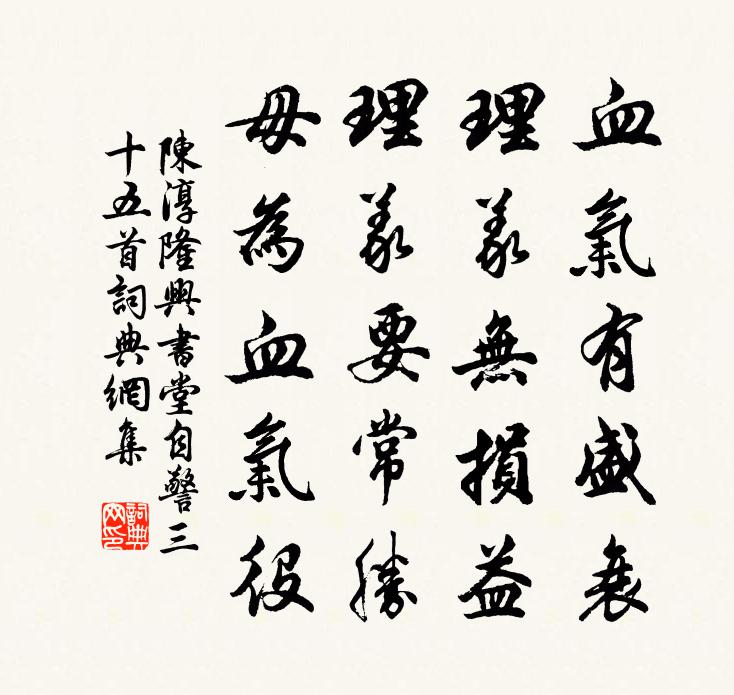 血氣有盛衰
理義無損益
理義要常勝
毋為血氣役
陳淳隆興書堂自警三
十五首詞典網集
詞典
网印